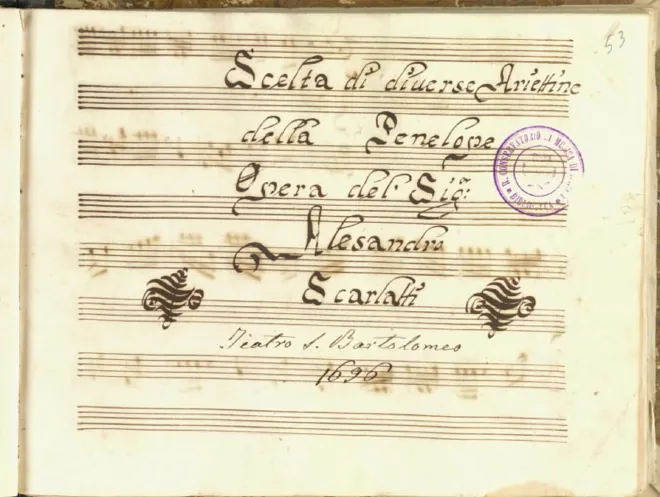 53
Scelta di diverse Ariettine
della Penelope
Opera del Sig.ʳ
Alesandro
Scarlatti
Teatro S. Bartolomeo
1696
R. CONSERVATORIO DI MUSICA DI